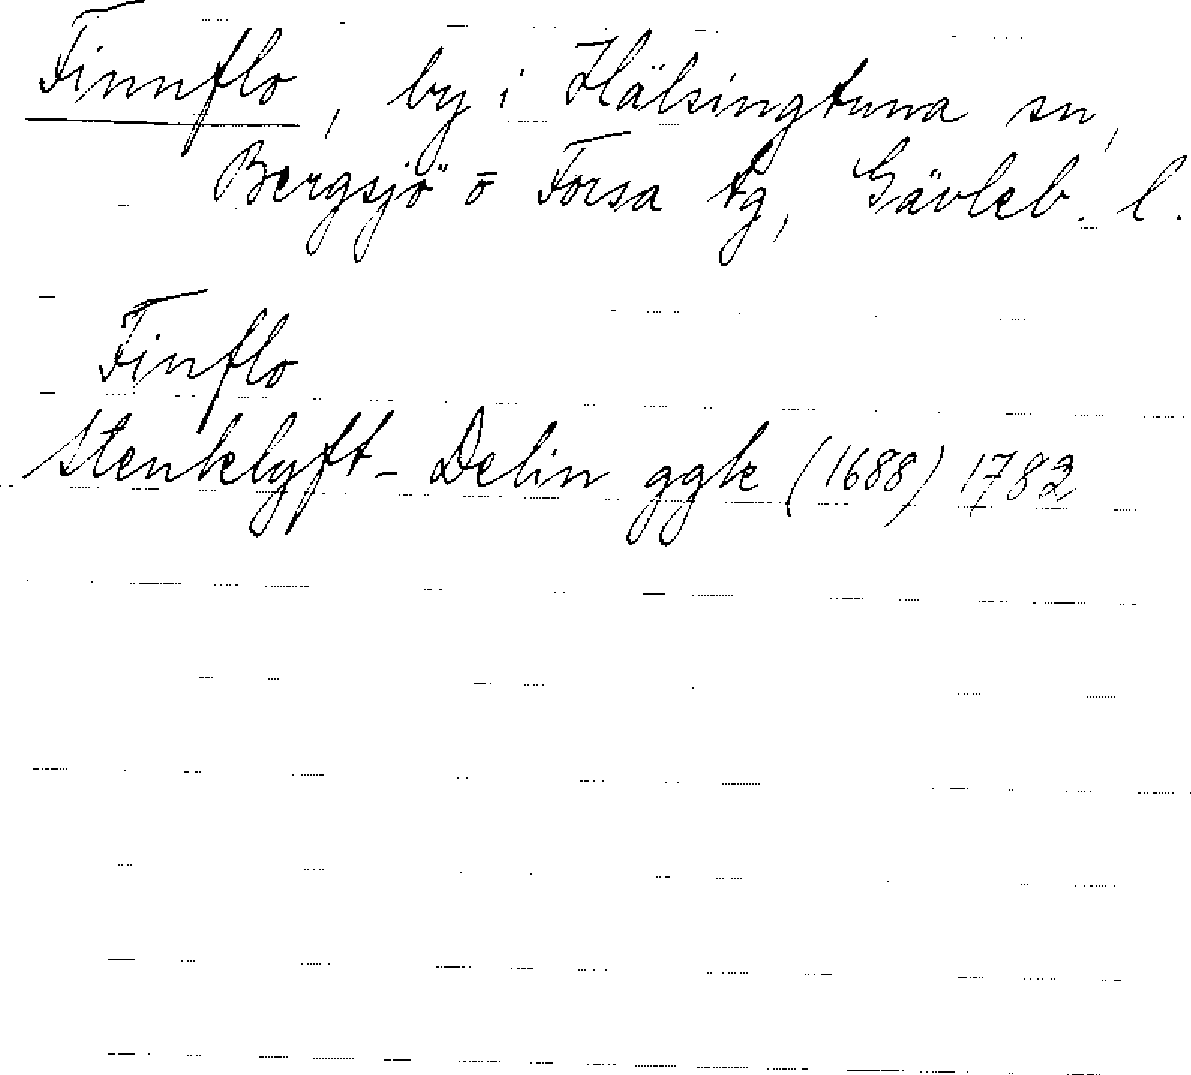 Finnflo, by i Hälsingtuna sn,
Bergsjö o Forsa tg, Gävleb. l.
Finflo
Stenklyft- Delin ggk (1688) 1782